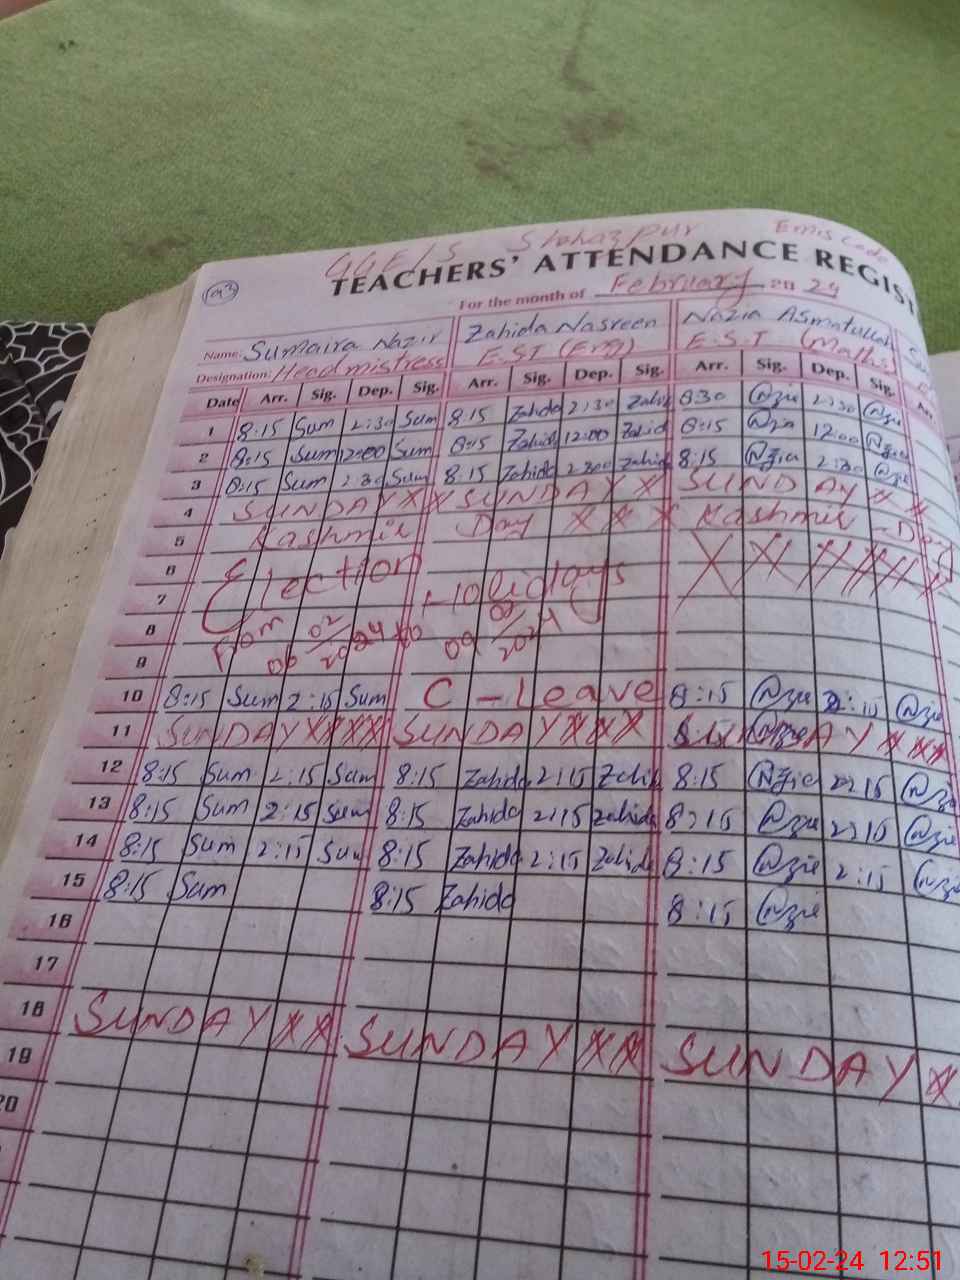 GGE/S Shahazpur Emis Code
93
TEACHERS' ATTENDANCE REGIST
For the month of February 20 24
Name: Sumaira Nazir Zahida Nasreen Nazia Asmatullah
Designation: Headmistress E.S.T (Eng) E.S.T (Maths)
Date Arr. Sig. Dep. Sig. Arr. Sig. Dep. Sig. Arr. Sig. Dep. Sig. Arr.
1 8:15 Sum 2:30 Sum 8:15 Zahida 2:30 Zahid 8:30 Nazia 2:30 Nazia
2 8:15 Sum 12:00 Sum 8:15 Zahida 12:00 Zahid 8:15 Nazia 12:00 Nazia
3 8:15 Sum 2:30 Sum 8:15 Zahida 2:300 Zahida 8:15 Nazia 2:30 Nazia
4 SUNDAY X X SUNDAY X X SUNDAY X X
5 Kashmir Day X X X Kashmir Day
6 Election Holidays X X X X X X
7
8 From 06 02/2024 to 09 02/2024
9
10 8:15 Sum 2:15 Sum C-Leave 8:15 Nazia 2:15 Nazia
11 SUNDAY X X X X SUNDAY X X X X SUNDAY X X X
12 8:15 Sum 2:15 Sum 8:15 Zahida 2:15 Zahid 8:15 Nazia 2:15 Nazia
13 8:15 Sum 2:15 Sum 8:15 Zahida 2:15 Zahida 8:15 Nazia 2:15 Nazia
14 8:15 Sum 2:15 Sum 8:15 Zahida 2:15 Zahida 8:15 Nazia 2:15 Nazia
15 8:15 Sum 8:15 Zahida 8:15 Nazia
16
17
18 SUNDAY X X SUNDAY X X SUNDAY X
19
20
15-02-24 12:51